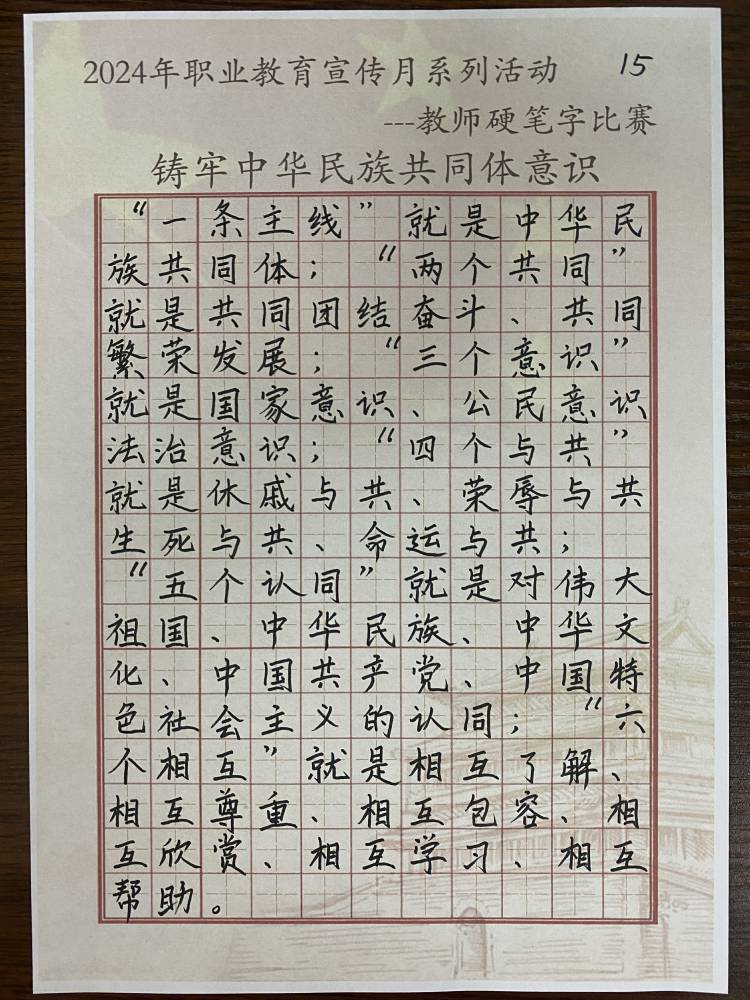 2024年职业教育宣传月系列活动 15
---教师硬笔字比赛
铸牢中华民族共同体意识
“一条主线”就是中华民
族共同体；“两个共同”
就是共同团结奋斗、共同
繁荣发展；“三个意识”
就是国家意识、公民意识
法治意识；“四个与共”
就是休戚与共、荣辱与共
生死与共、命运与共；
“五个认同”就是对伟大
祖国、中华民族、中华文
化、中国共产党、中国特
色社会主义的认同；“六
个相互”就是相互了解、
相互尊重、相互包容、相
互欣赏、相互学习、相互
帮助。